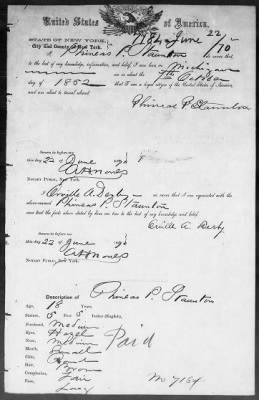 United States of America.
STATE OF NEW YORK,
City and County of New York.
June 22 /70
I Phineas P. Staunton do swear that
to the best of my knowledge, information, and belief, I was born in Michigan
on or about the 7th October
day of 1852 ; that I am a loyal citizen of the United States of America,
and am about to travel abroad.
Phineas P Staunton
Sworn to before me
this day 22 June 1870
NOTARY PUBLIC, New York.
I, Orville A. Derby do swear that I am acquainted with the
above-named Phineas P. Staunton
and that the facts above stated by him are true to the best of my knowledge and belief.
Orville A. Derby
Sworn to before me
this day 22 June 1870
NOTARY PUBLIC, New York.
Description of Phineas P. Staunton
Age, 18 Years.
Stature, 5 Feet 5 Inches (English).
Forehead, Medium
Eyes, Hazel
Nose, Medium
Mouth, Small
Chin, Round
Hair, Brown
Complexion, Fair
Face,
Paid
No 7184